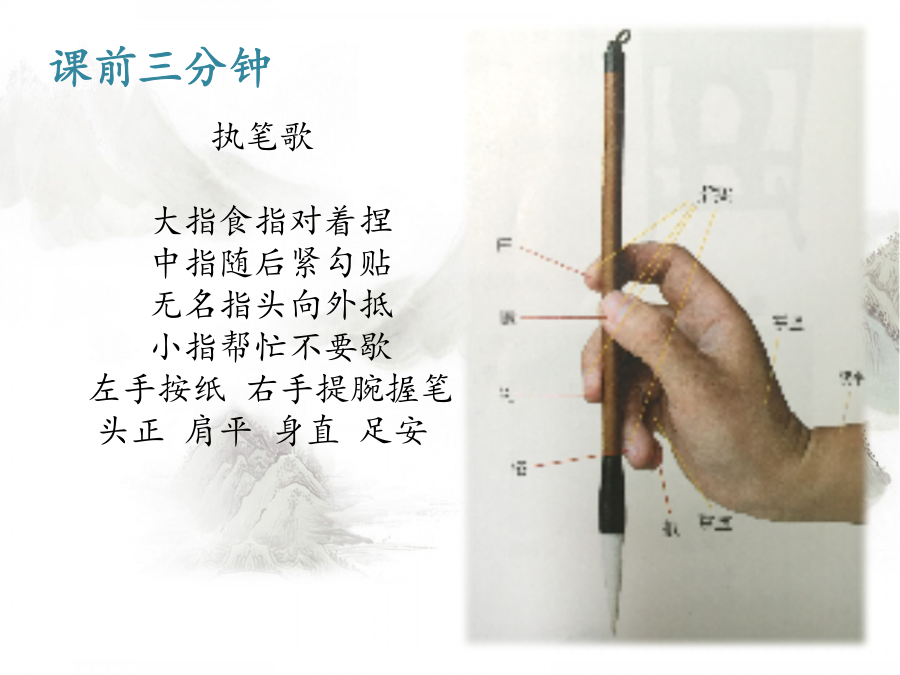 课前三分钟
执笔歌
大指食指对着捏
中指随后紧勾贴
无名指头向外抵
小指帮忙不要歇
左手按纸 右手提腕握笔
头正 肩平 身直 足安